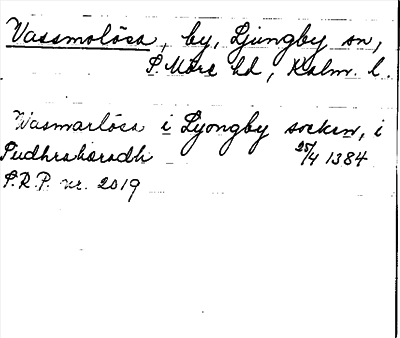 Vassmolösa, by, Ljungby sn,
S. Möre hd, Kalm. l.
Wasmarlösa i Lyongby socken, i
Sudhraharadh 25/4 1384
S.R.P. nr. 2019